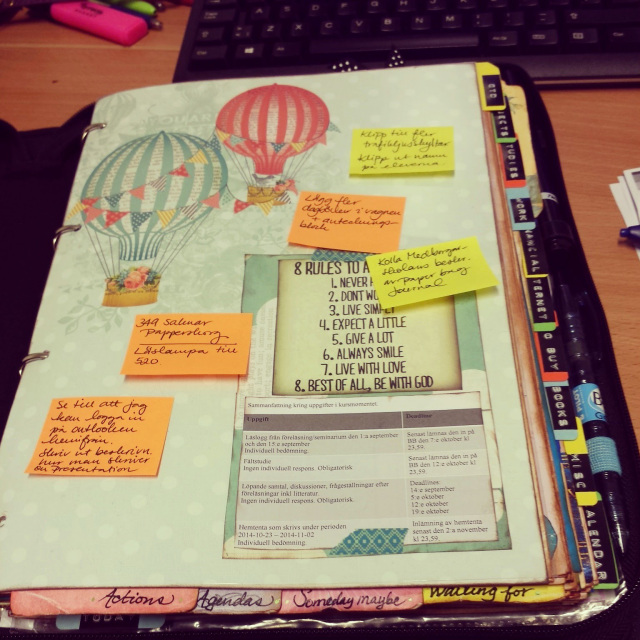 Klipp till fler
trafikljusskyltar
Klipp ut namn
på eleverna.
Lägg fler
dagböcker i vagnen
+ antecknings-
block
Kolla Medborgar-
skolans beskr.
av paper bag
journal
8 RULES TO A
1. NEVER
2. DONT WO
3. LIVE SIMPLY
4. EXPECT A LITTLE
5. GIVE A LOT
6. ALWAYS SMILE
7. LIVE WITH LOVE
8. BEST OF ALL, BE WITH GOD
349 saknar
Pappersborg
Läslampa till
520.
Se till att jag
kan logga in
på outlooken
hemifrån.
Skriv ut beskrivn.
hur man skriver
en presentation
Sammanfattning kring uppgifter i kursmomentet.
Uppgift Deadline
Läslogg från föreläsning/seminarium den 1:a september
och den 15:e september
Individuell bedömning.
Senast lämnas den in på
BB den 7:e oktober kl
23.59.
Fältstudie
Ingen individuell respons. Obligatorisk.
Senast lämnas den in på
BB den 12:e oktober kl
23.59.
Löpande samtal, diskussioner, frågeställningar efter
föreläsningar inkl litteratur.
Ingen individuell respons. Obligatorisk.
Deadlines:
14:e september
5:e oktober
12:e oktober
19:e oktober
Hemtenta som skrivs under perioden
2014-10-23 – 2014-11-02
Individuell bedömning.
Inlämning av hemtenta
senast den 2:a november
kl 23.59.
GTD
STUDIES
WORK
INTERNET
BUY
BOOKS
CALENDAR
Actions
Agendas
Someday maybe
Waiting for
TODAY